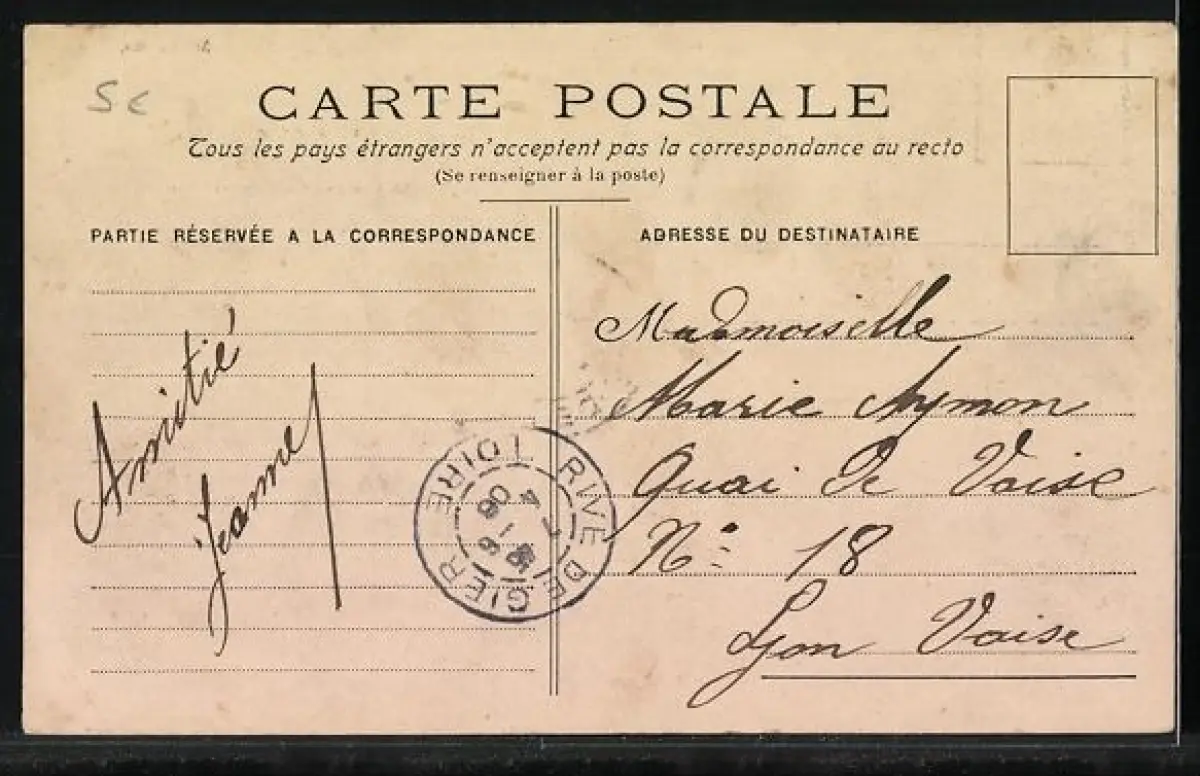 5c
CARTE POSTALE
Tous les pays étrangers n'acceptent pas la correspondance au recto
(Se renseigner à la poste)
PARTIE RÉSERVÉE A LA CORRESPONDANCE
Amitié
Jeanne
ADRESSE DU DESTINATAIRE
Mademoiselle
Marie Aymon
Quai De Vaise
N° 18
Lyon Vaise
RIVE DE GIER LOIRE